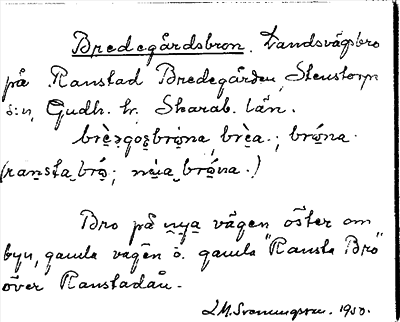 Bredegårdsbron. Landsvägsbro
på Ranstad Bredegården, Stenstorps
s:n, Gudh. hr. Skarab. län.
brè̤əgo̤s̤brώ̤na, brè̤a.; brώ̤na.
(ran̤sta̤ brώ̤; nẃa̤ brώ̤na.)
Bro på nya vägen öster om
byn, gamla vägen ö. gamla "Ransta Bro"
över Ranstadån.
1950.